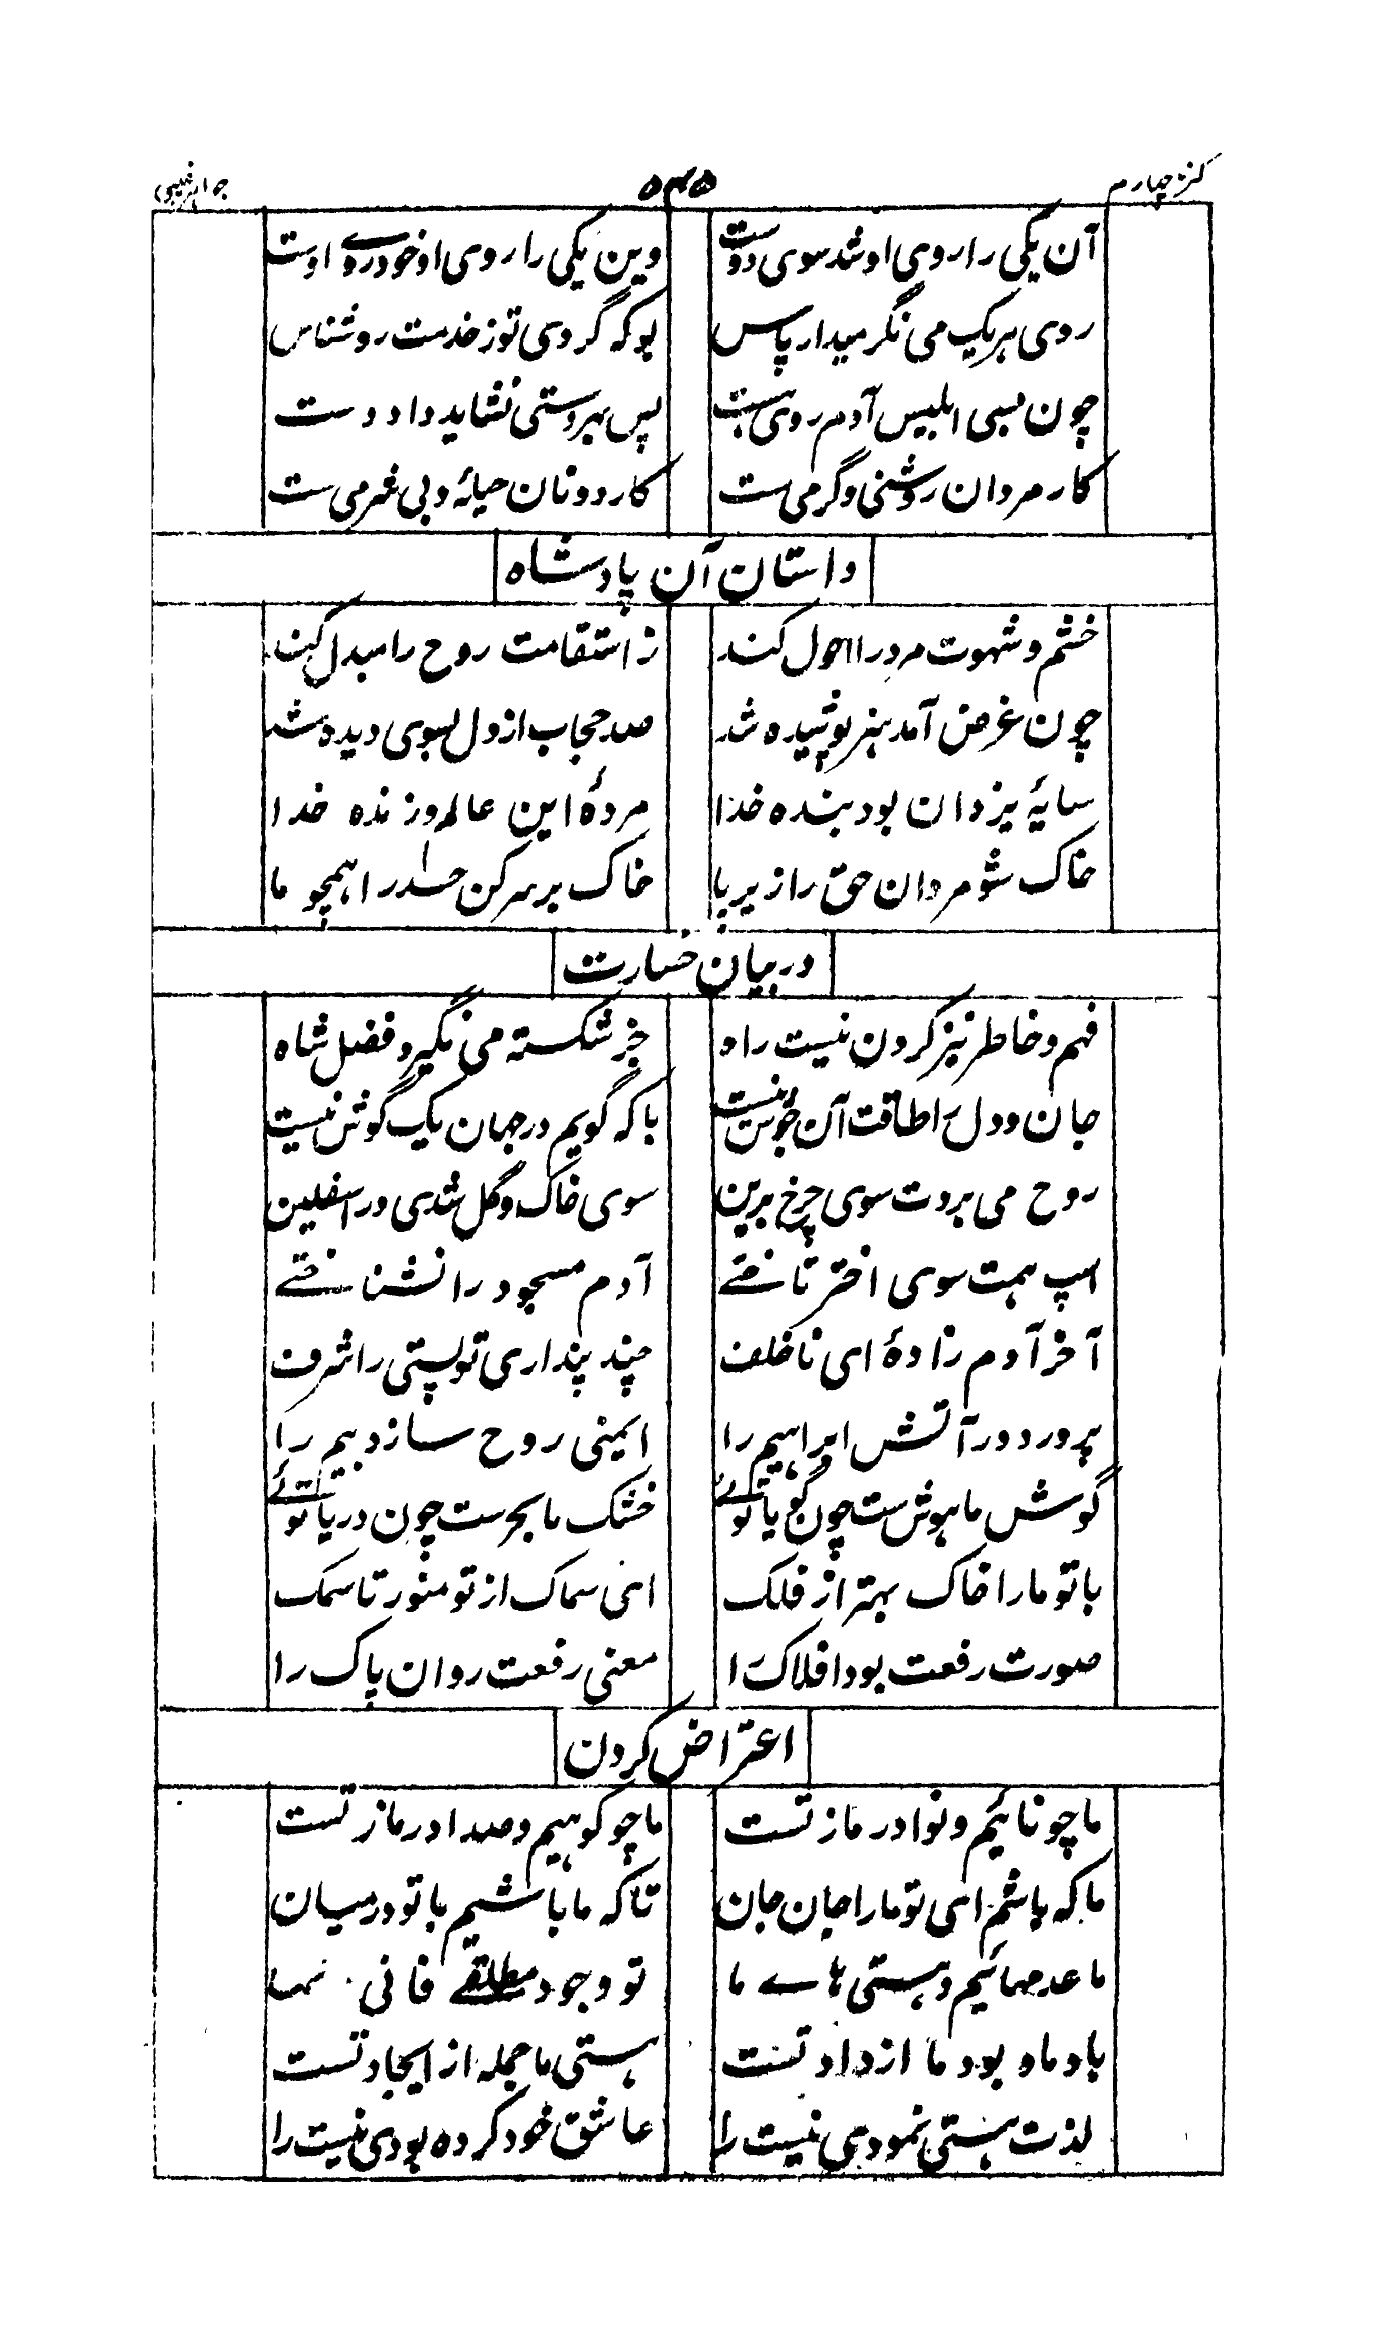 کنز چهارم ۵۴۵ جواهر غیبی
آن یکی را روی او شد سوی دوست وین یکی را روی او خود روے اوست
روی هر یک می نگر میدار پاس بوکه گردی تو ز خدمت روشناس
چون بسی ابلیس آدم روی هست پس بهر دستی نشاید داد دست
کار مردان روشنی و گرمی ست کار دونان حیلهٔ و بی شرمی ست
داستان آن پادشاه
خشم و شهوت مرد را احول کند ز استقامت روح را مبدل کند
چون غرض آمد هنر پوشیده شد صد حجاب از دل بسوی دیده شد
سایهٔ یزدان بود بنده خدا مردهٔ این عالم و زنده خدا
خاک شو مردان حق را زیر پا خاک بر سر کن حسد را همچو ما
در بیان خسارت
فهم و خاطر تیز کردن نیست راه جز شکسته می نگیرد فضل شاه
جان و دل را طاقت آن جوش نیست با که گویم در جهان یک گوش نیست
روح می بردت سوی چرخ برین سوی خاک و گل شدی در اسفلین
اسپ همت سوی اختر تاختے آدم مسجود را نشناختے
آخر آدم زادهٔ ای ناخلف چند پنداری تو پستی را شرف
پرورد در آتش ابراهیم را ایمنی روح سازد بیم را
گوش ما هوش ست چون گویا توئے خشک ما بحرست چون دریا توئے
با تو ما را خاک بهتر از فلک ای سماک از تو منور تا سمک
صورت رفعت بود افلاک را معنی رفعت روان پاک را
اعتراض کردن
ما چو نائیم و نوا در ما ز تست ما چو کوهیم و صدا در ما ز تست
ما که باشیم ای تو ما را جان جان تا که ما باشیم با تو در میان
ما عدمهائیم و هستی هاے ما تو وجود مطلقے فانی نما
باد ما و بود ما از داد تست هستی ما جمله از ایجاد تست
لذت هستی نمودی نیست را عاشق خود کرده بودی نیست را